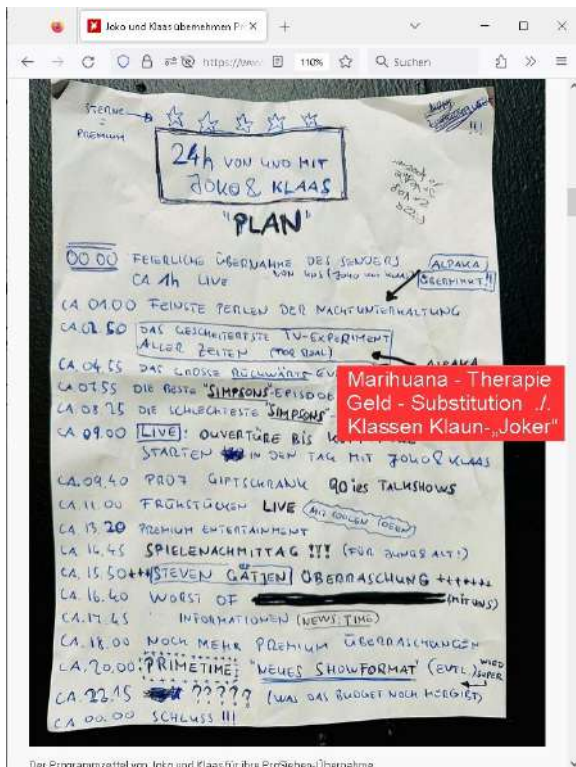 Joko und Klaas übernehmen Pr
https://www.
110%
Suchen
STERNE = PREMIUM
24h VON UND MIT
JOKO & KLAAS
"PLAN"
00.00 FEIERLICHE ÜBERNAHME DES SENDERS
VON UNS (JOKO UND KLAAS)
CA 1h LIVE
ALPAKA
ÜBERNIMMT!!
CA 01.00 FEINSTE PERLEN DER NACHTUNTERHALTUNG
CA. 02.50 DAS GESCHEITERTSTE TV-EXPERIMENT
ALLER ZEITEN (FOR REAL)
CA. 04.55 DAS GROSSE RÜCKWÄRTS
ALPAKA
CA 07.55 DIE BESTE "SIMPSONS"-EPISODE
CA. 08.25 DIE SCHLECHTESTE "SIMPSONS"-
Marihuana - Therapie
Geld - Substitution ./.
Klassen Klaun-„Joker"
CA. 09.00 LIVE: OUVERTÜRE BIS
STARTEN IN DEN TAG MIT JOKO & KLAAS
CA. 09.40 PRO7 GIFTSCHRANK 90ies TALKSHOWS
CA. 11.00 FRÜHSTÜCKEN LIVE (MIT COOLEN IDEEN)
CA. 13.20 PREMIUM ENTERTAINMENT
CA. 14.45 SPIELENACHMITTAG !!! (FÜR JUNG & ALT!)
CA. 15.50 +++ STEVEN GÄTJEN ÜBERRASCHUNG ++++++
CA. 16.40 WORST OF (MIT UNS)
CA. 17.45 INFORMATIONEN (NEWS TIME)
CA. 18.00 NOCH MEHR PREMIUM ÜBERRASCHUNGEN
CA. 20.00: PRIMETIME: "NEUES SHOWFORMAT" (EVTL.) WIRD SUPER
CA. 22.15 ????? (WAS DAS BUDGET NOCH HERGIBT)
CA 00.00 SCHLUSS !!!
Der Programmzettel von Joko und Klaas für ihre ProSieben-Übernahme